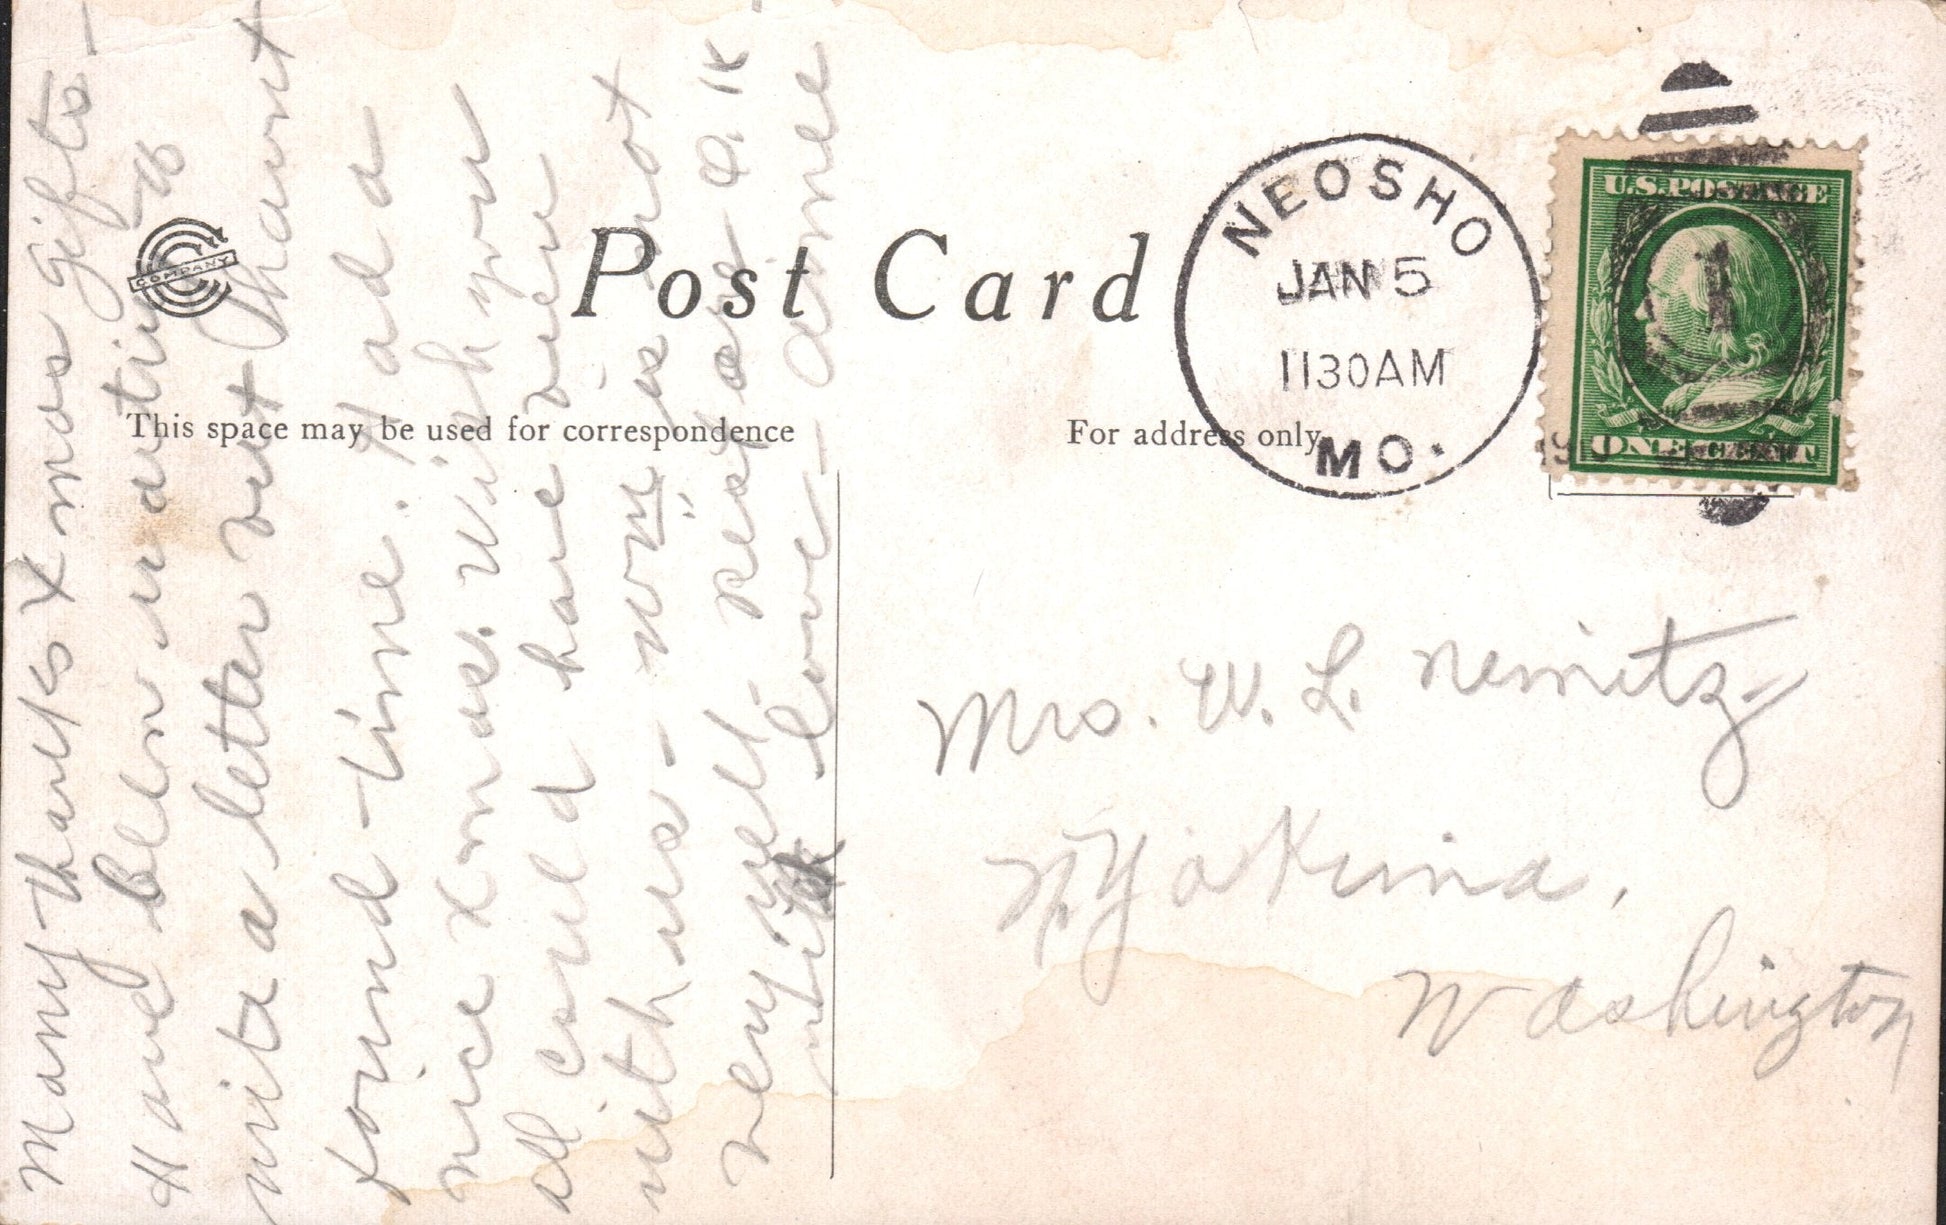 Many thanks Xmas gifts -
Have been waiting to
write a letter but havent
found time. Had a
nice Xmas. Wish you
all could have been
with us. is not
very well. rest are O.K.
with love
COMPANY
Post Card
This space may be used for correspondence
For address only
NEOSHO
JAN 5
1130AM
MO.
U.S. POSTAGE
1
ONE CENT
Mrs. W. L. Nemitz
N. Yakima,
Washington